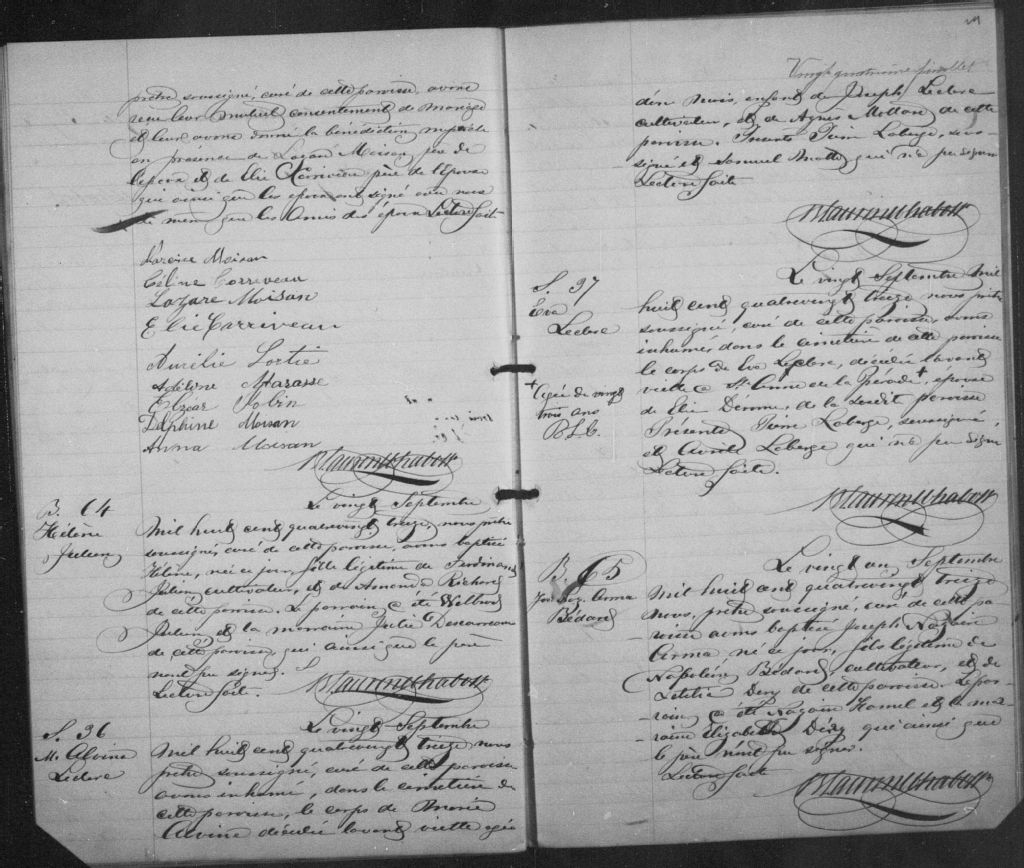 prêtre soussigné, curé de cette paroisse, avons
reçu leur mutuel consentement de mariage
et leur avons donné la bénédiction nuptiale
en présence de Lazare Moisan père de
l'époux et de Elie Corriveau père de l'épouse
qui ainsi que les époux ont signé avec nous
de même que les amis des époux Lecture faite
Moisan
Céline Corriveau
Lazare Moisan
Elie Carriveau
Aurélie Lortie
Adéline Marasse
Elzéar Jobin
Delphine Moisan
Anna Moisan
B. 64
Hélène
Julien
Le vingt Septembre
mil huit cent quatrevingt treize, nous prêtre
soussigné, curé de cette paroisse, avons baptisé
Hélène, née ce jour, fille légitime de Ferdinand
Julien cultivateur, et de Amanda Richard
de cette paroisse. Le parrain a été
Julien et la marraine Julie Descarreau
de cette paroisse, qui ainsi que le père
n'ont pu signer.
Lecture faite.
S. 36
M. Alvina
Leclerc
Le vingt Septembre
mil huit cent quatrevingt treize nous
prêtre soussigné, curé de cette paroisse
avons inhumé, dans le cimetière de
cette paroisse, le corps de Marie
Alvine décédée l'avant veille agée
Vingt quatrième feuillet
d'un mois, enfant de Joseph Leclerc
cultivateur, et de Agnès Mottard de cette
paroisse. Présents Laberge, sous-
signé et Samuel qui n'a pu signer
Lecture faite
S. 37
Eva
Leclerc
Le vingt Septembre mil
huit cent quatrevingt treize nous prêtre
soussigné, curé de cette paroisse, avons
inhumé, dans le cimetière de cette paroisse
le corps de Eva Leclerc, décédée l'avant
veille a Ste Anne de la Pérade +, épouse
de Elie de la susdite paroisse
Présents Laberge, soussigné,
et Laberge qui n'a pu signer
Lecture faite.
+ agée de vingt
trois ans
B. 65
Jos. Naz. Arma
Bédard
Le vingt un Septembre
mil huit cent quatrevingt treize
nous, prêtre soussigné, curé de cette pa-
roisse avons baptisé Joseph Nazaire
Arma né ce jour, fils légitime de
Napoléon Bédard, cultivateur, et de
Letitia Dery de cette paroisse. Le par-
rain a été Nazaire Hamel et la mar-
raine Elizabeth Déry qui ainsi que
le père n'ont pu signer.
Lecture faite